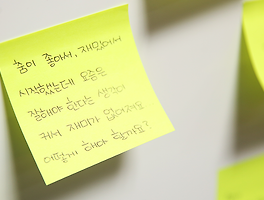 춤이 좋아서, 재밌어서
시작했는데 요즘은
잘해야 한다는 생각이
커서 재미가 없어져요
어떻게 해야 할까요?